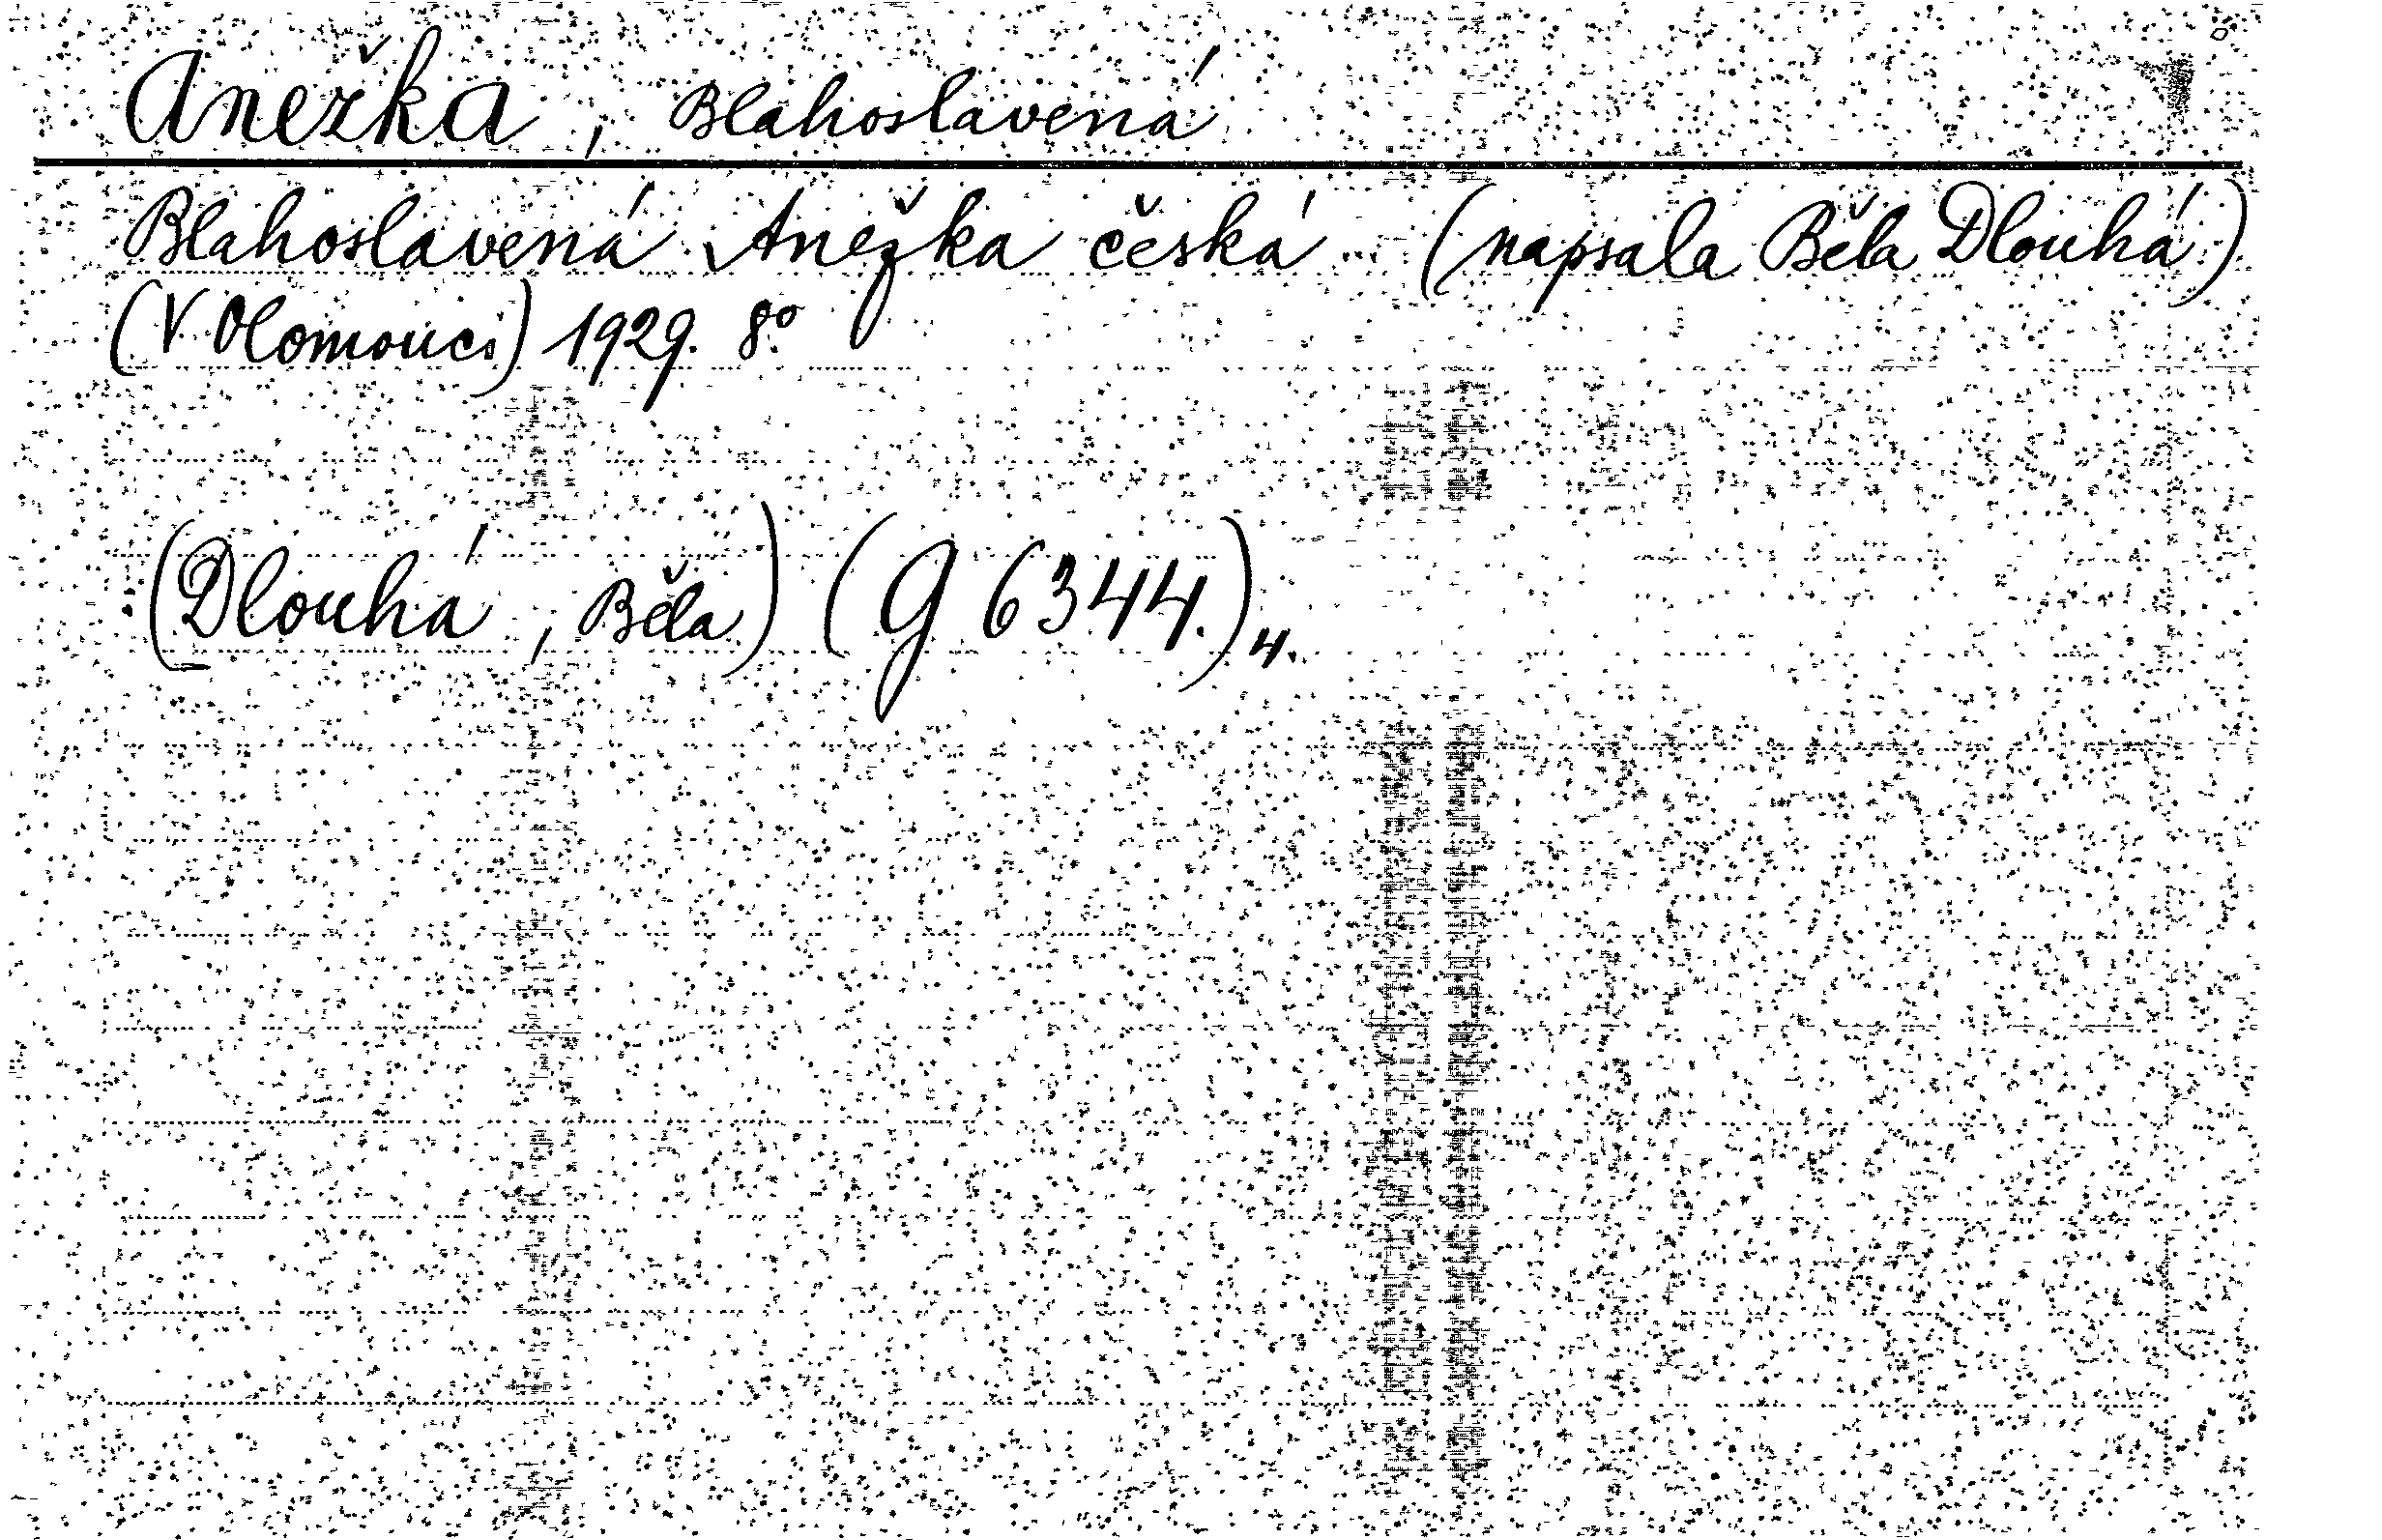 Anežka, Blahoslavená
Blahoslavená Anežka česká .. (napsala Běla Dlouhá)
(V Olomouci) 1929. 8°
(Dlouhá, Běla) (G 6344.) 4.